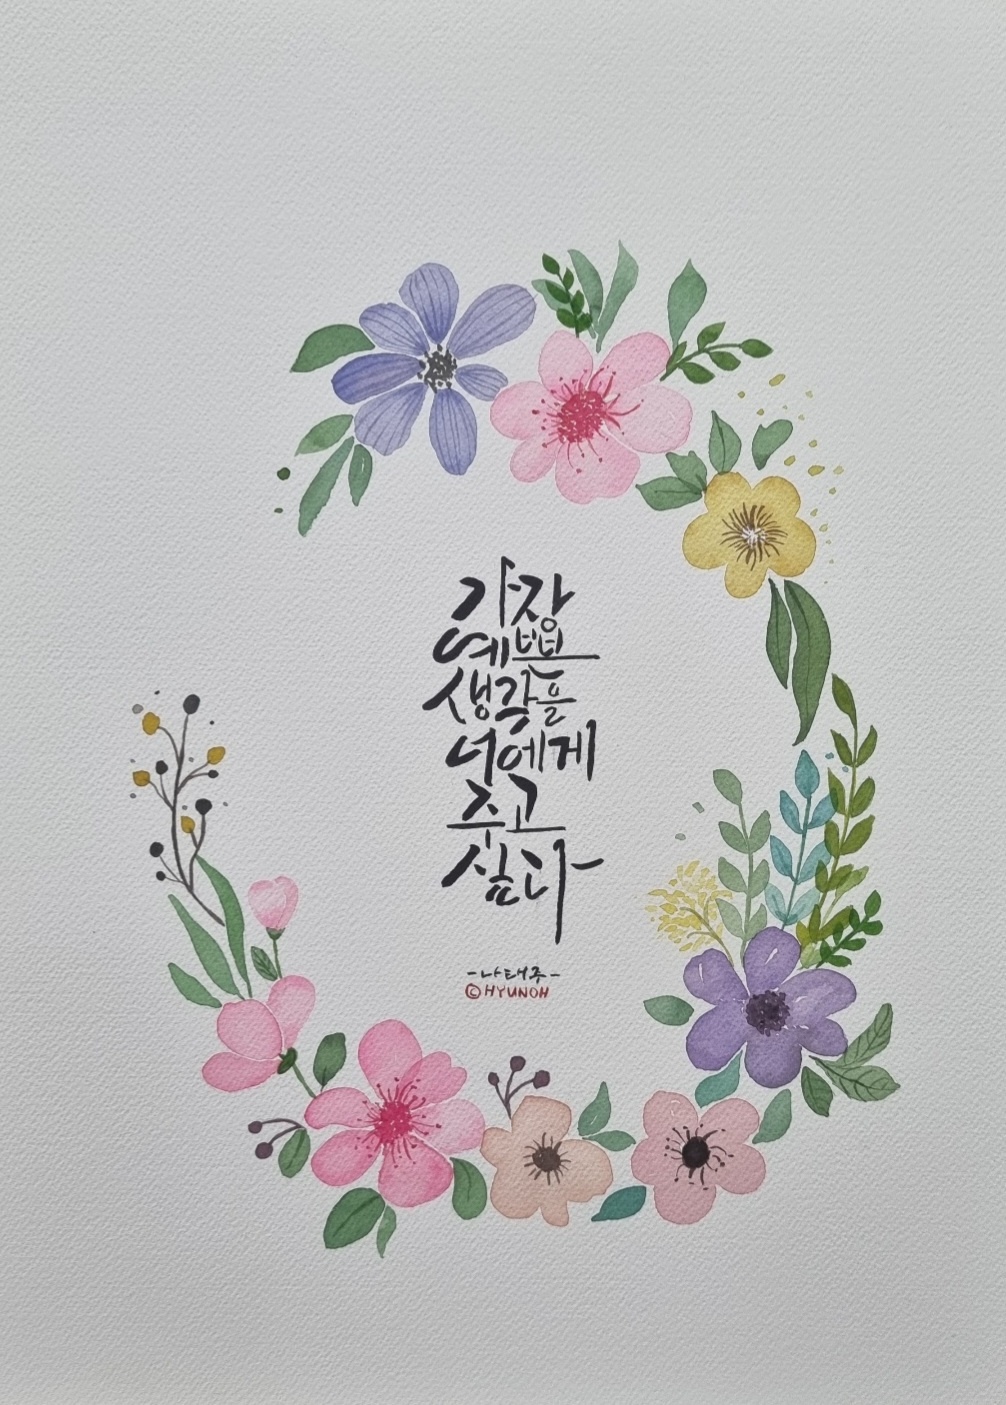 가장
예쁜
생각을
너에게
주고
싶다
-나태주-
©HYUNOH